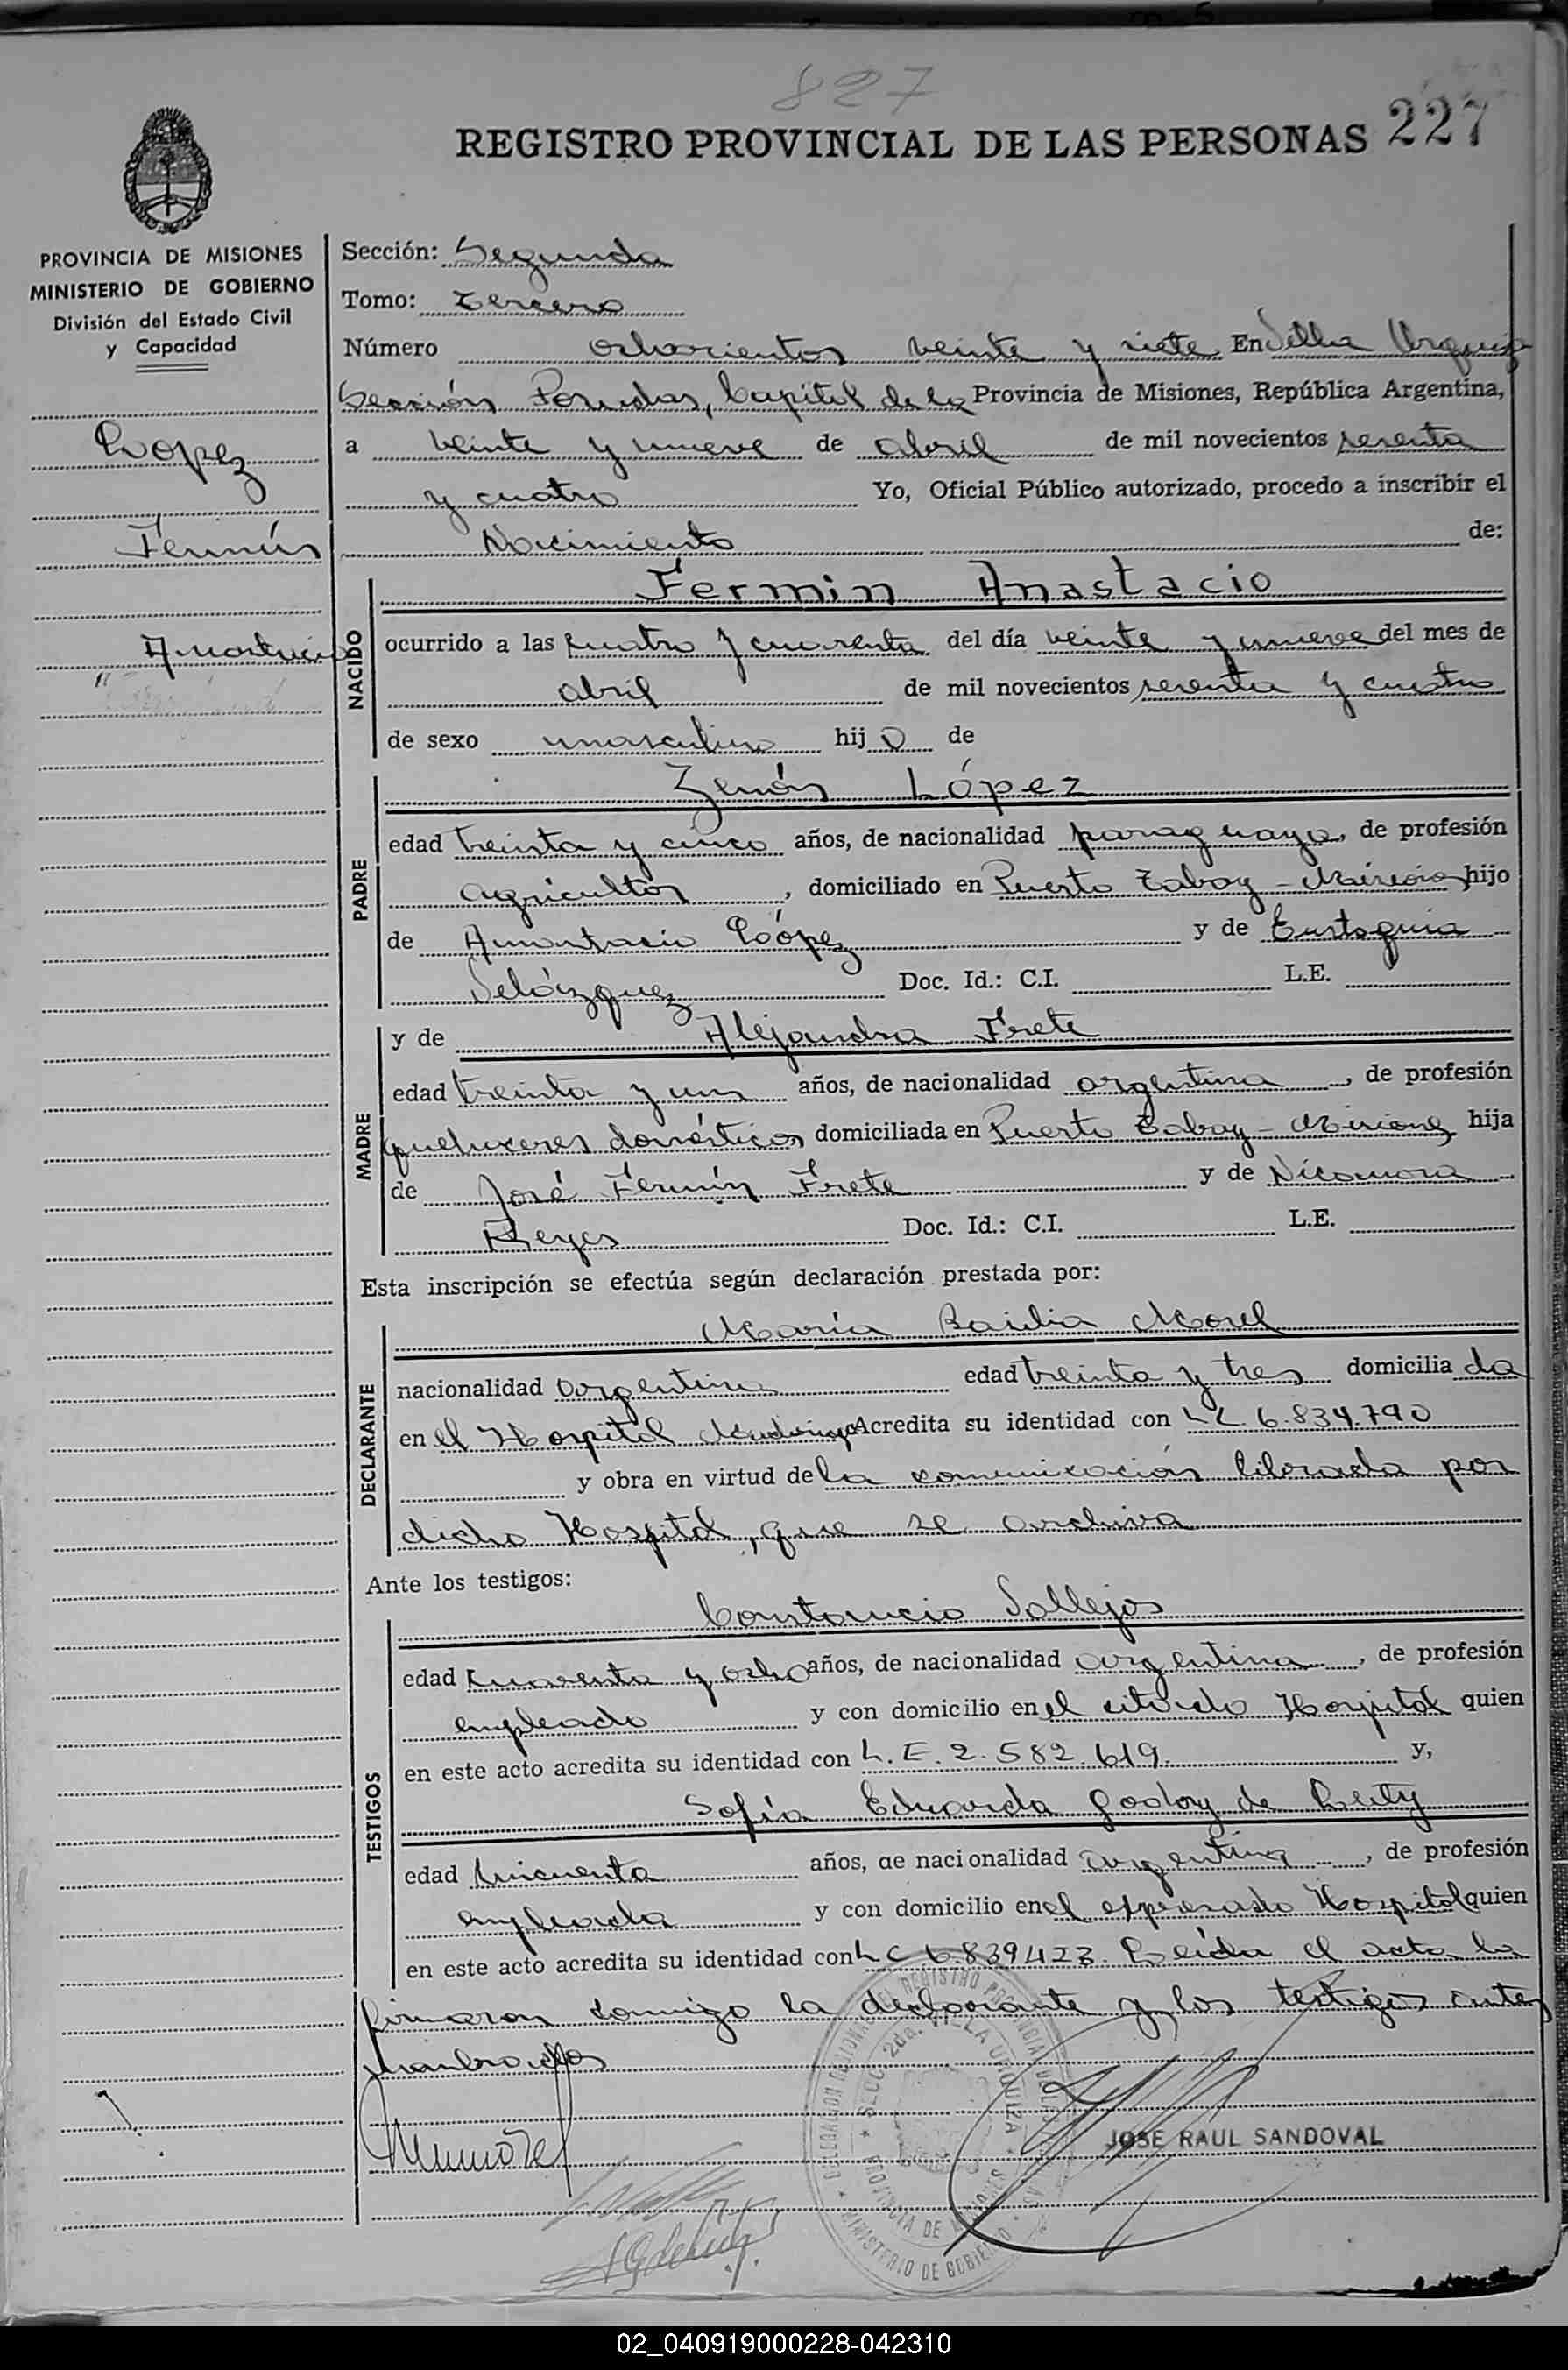 827
REGISTRO PROVINCIAL DE LAS PERSONAS 227
PROVINCIA DE MISIONES
MINISTERIO DE GOBIERNO
División del Estado Civil
y Capacidad
Lopez
Fermín
Anastacio
Sección: Segunda
Tomo: tercero
Número ochocientos veinte y siete En Villa Urquiza
Sección Posadas, Capital de la Provincia de Misiones, República Argentina,
a veinte y nueve de abril de mil novecientos sesenta
y cuatro Yo, Oficial Público autorizado, procedo a inscribir el
Nacimiento de:
NACIDO
Fermin Anastacio
ocurrido a las cuatro y cuarenta del día veinte y nueve del mes de
abril de mil novecientos sesenta y cuatro
de sexo masculino hijo de
PADRE
Zenón López
edad treinta y cinco años, de nacionalidad paraguaya, de profesión
agricultor, domiciliado en Puerto Tabay - Misiones hijo
de Anastacio López y de Eustaquia
Velázquez Doc. Id.: C.I. L.E.
MADRE
y de Alejandra Frete
edad treinta y un años, de nacionalidad argentina, de profesión
quehaceres domésticos domiciliada en Puerto Tabay - Misiones hija
de José Fermín Frete y de
Reyes Doc. Id.: C.I. L.E.
Esta inscripción se efectúa según declaración prestada por:
DECLARANTE
María Morel
nacionalidad argentina edad treinta y tres domiciliada
en el Hospital Madariaga Acredita su identidad con L C. 6.834.790
y obra en virtud de la comunicación librada por
dicho Hospital, que se archiva
Ante los testigos:
TESTIGOS
Constancio Vallejos
edad cuarenta y ocho años, de nacionalidad argentina, de profesión
empleado y con domicilio en el citado Hospital quien
en este acto acredita su identidad con L.E. 2.582.619. y,
Sofía Eduarda Godoy de
edad cincuenta años, de nacionalidad argentina, de profesión
empleada y con domicilio en el expresado Hospital quien
en este acto acredita su identidad con L C 6.839423. Leída el acta la
firmaron conmigo la declarante y los testigos ante
nombrados
SECC. 2da. VILLA URQUIZA
PROVINCIA DE MISIONES
MINISTERIO DE GOBIERNO
JOSE RAUL SANDOVAL
02_040919000228-042310